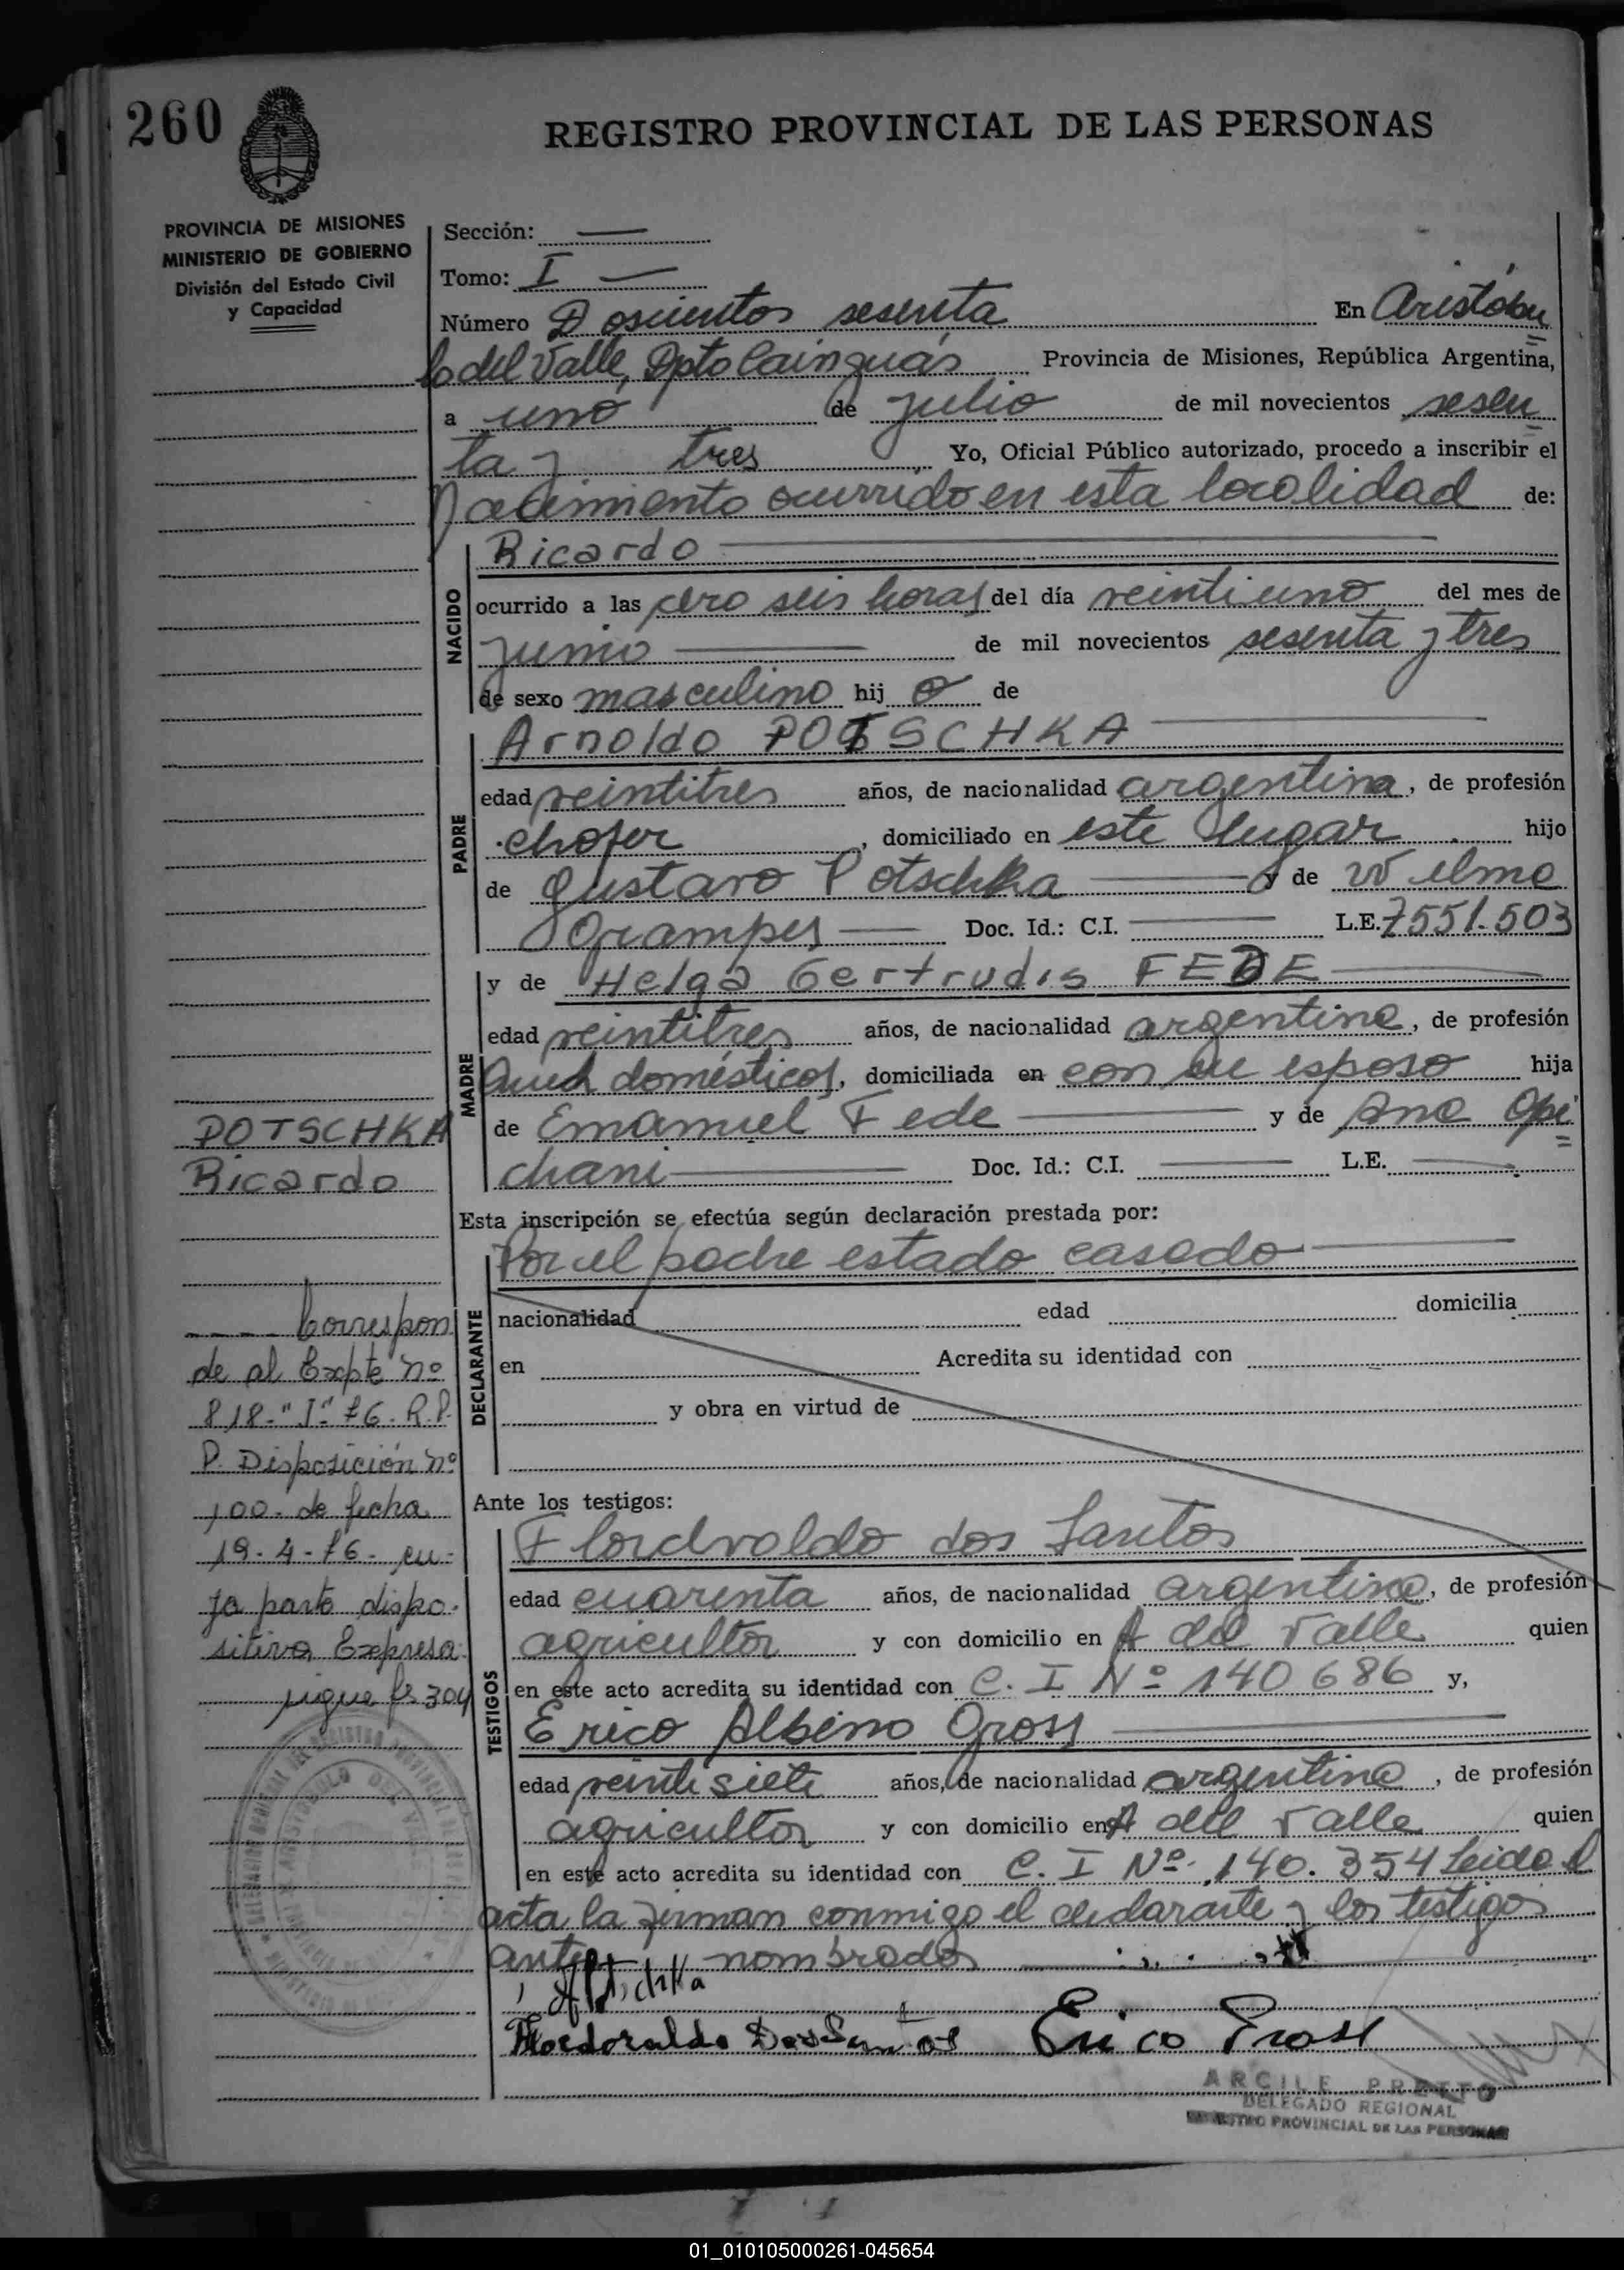 260
REGISTRO PROVINCIAL DE LAS PERSONAS
PROVINCIA DE MISIONES
MINISTERIO DE GOBIERNO
División del Estado Civil
y Capacidad
Sección:
Tomo: I
Número Doscientos sesenta En Aristóbu
lo del Valle, Dpto Cainguás Provincia de Misiones, República Argentina,
a uno de julio de mil novecientos sesen
ta y tres Yo, Oficial Público autorizado, procedo a inscribir el
Nacimiento ocurrido en esta localidad de:
NACIDO
Ricardo
ocurrido a las cero seis horas del día veintiuno del mes de
junio de mil novecientos sesenta y tres
de sexo masculino hij o de
PADRE
Arnoldo POTSCHKA
edad veintitres años, de nacionalidad argentina, de profesión
chofer, domiciliado en este lugar hijo
de Gustavo Potschka y de Wilma
Grampes Doc. Id.: C.I. L.E. 7551.503
MADRE
y de Helga Gertrudis FEDE
edad veintitres años, de nacionalidad argentina, de profesión
Queh domésticos, domiciliada en con su esposo hija
de Emanuel Fede y de Ana Opi
chani Doc. Id.: C.I. L.E.
POTSCHKA
Ricardo
Esta inscripción se efectúa según declaración prestada por:
DECLARANTE
Por el padre estado casado
nacionalidad edad domicilia
en Acredita su identidad con
y obra en virtud de
Correspon
de al Expte nº
818-"I" 76. R.P.
P. Disposición nº
100- de fecha
19-4-76- cu-
ya parte dispo-
sitiva Expresa:
sigue fs 304
Ante los testigos:
TESTIGOS
Flordvaldo dos Santos
edad cuarenta años, de nacionalidad argentina, de profesión
agricultor y con domicilio en A del Valle quien
en este acto acredita su identidad con C. I Nº 140686 y,
Erico Albino Gross
edad veintisiete años, de nacionalidad argentina, de profesión
agricultor y con domicilio en A del Valle quien
en este acto acredita su identidad con C. I Nº 140.354 Leida el
acta la firman conmigo el declarante y los testigos
antes nombrados
Flordoraldo Dos Santos Erico Gross
ARCILE PRETTO
DELEGADO REGIONAL
REGISTRO PROVINCIAL DE LAS PERSONAS
01_010105000261-045654